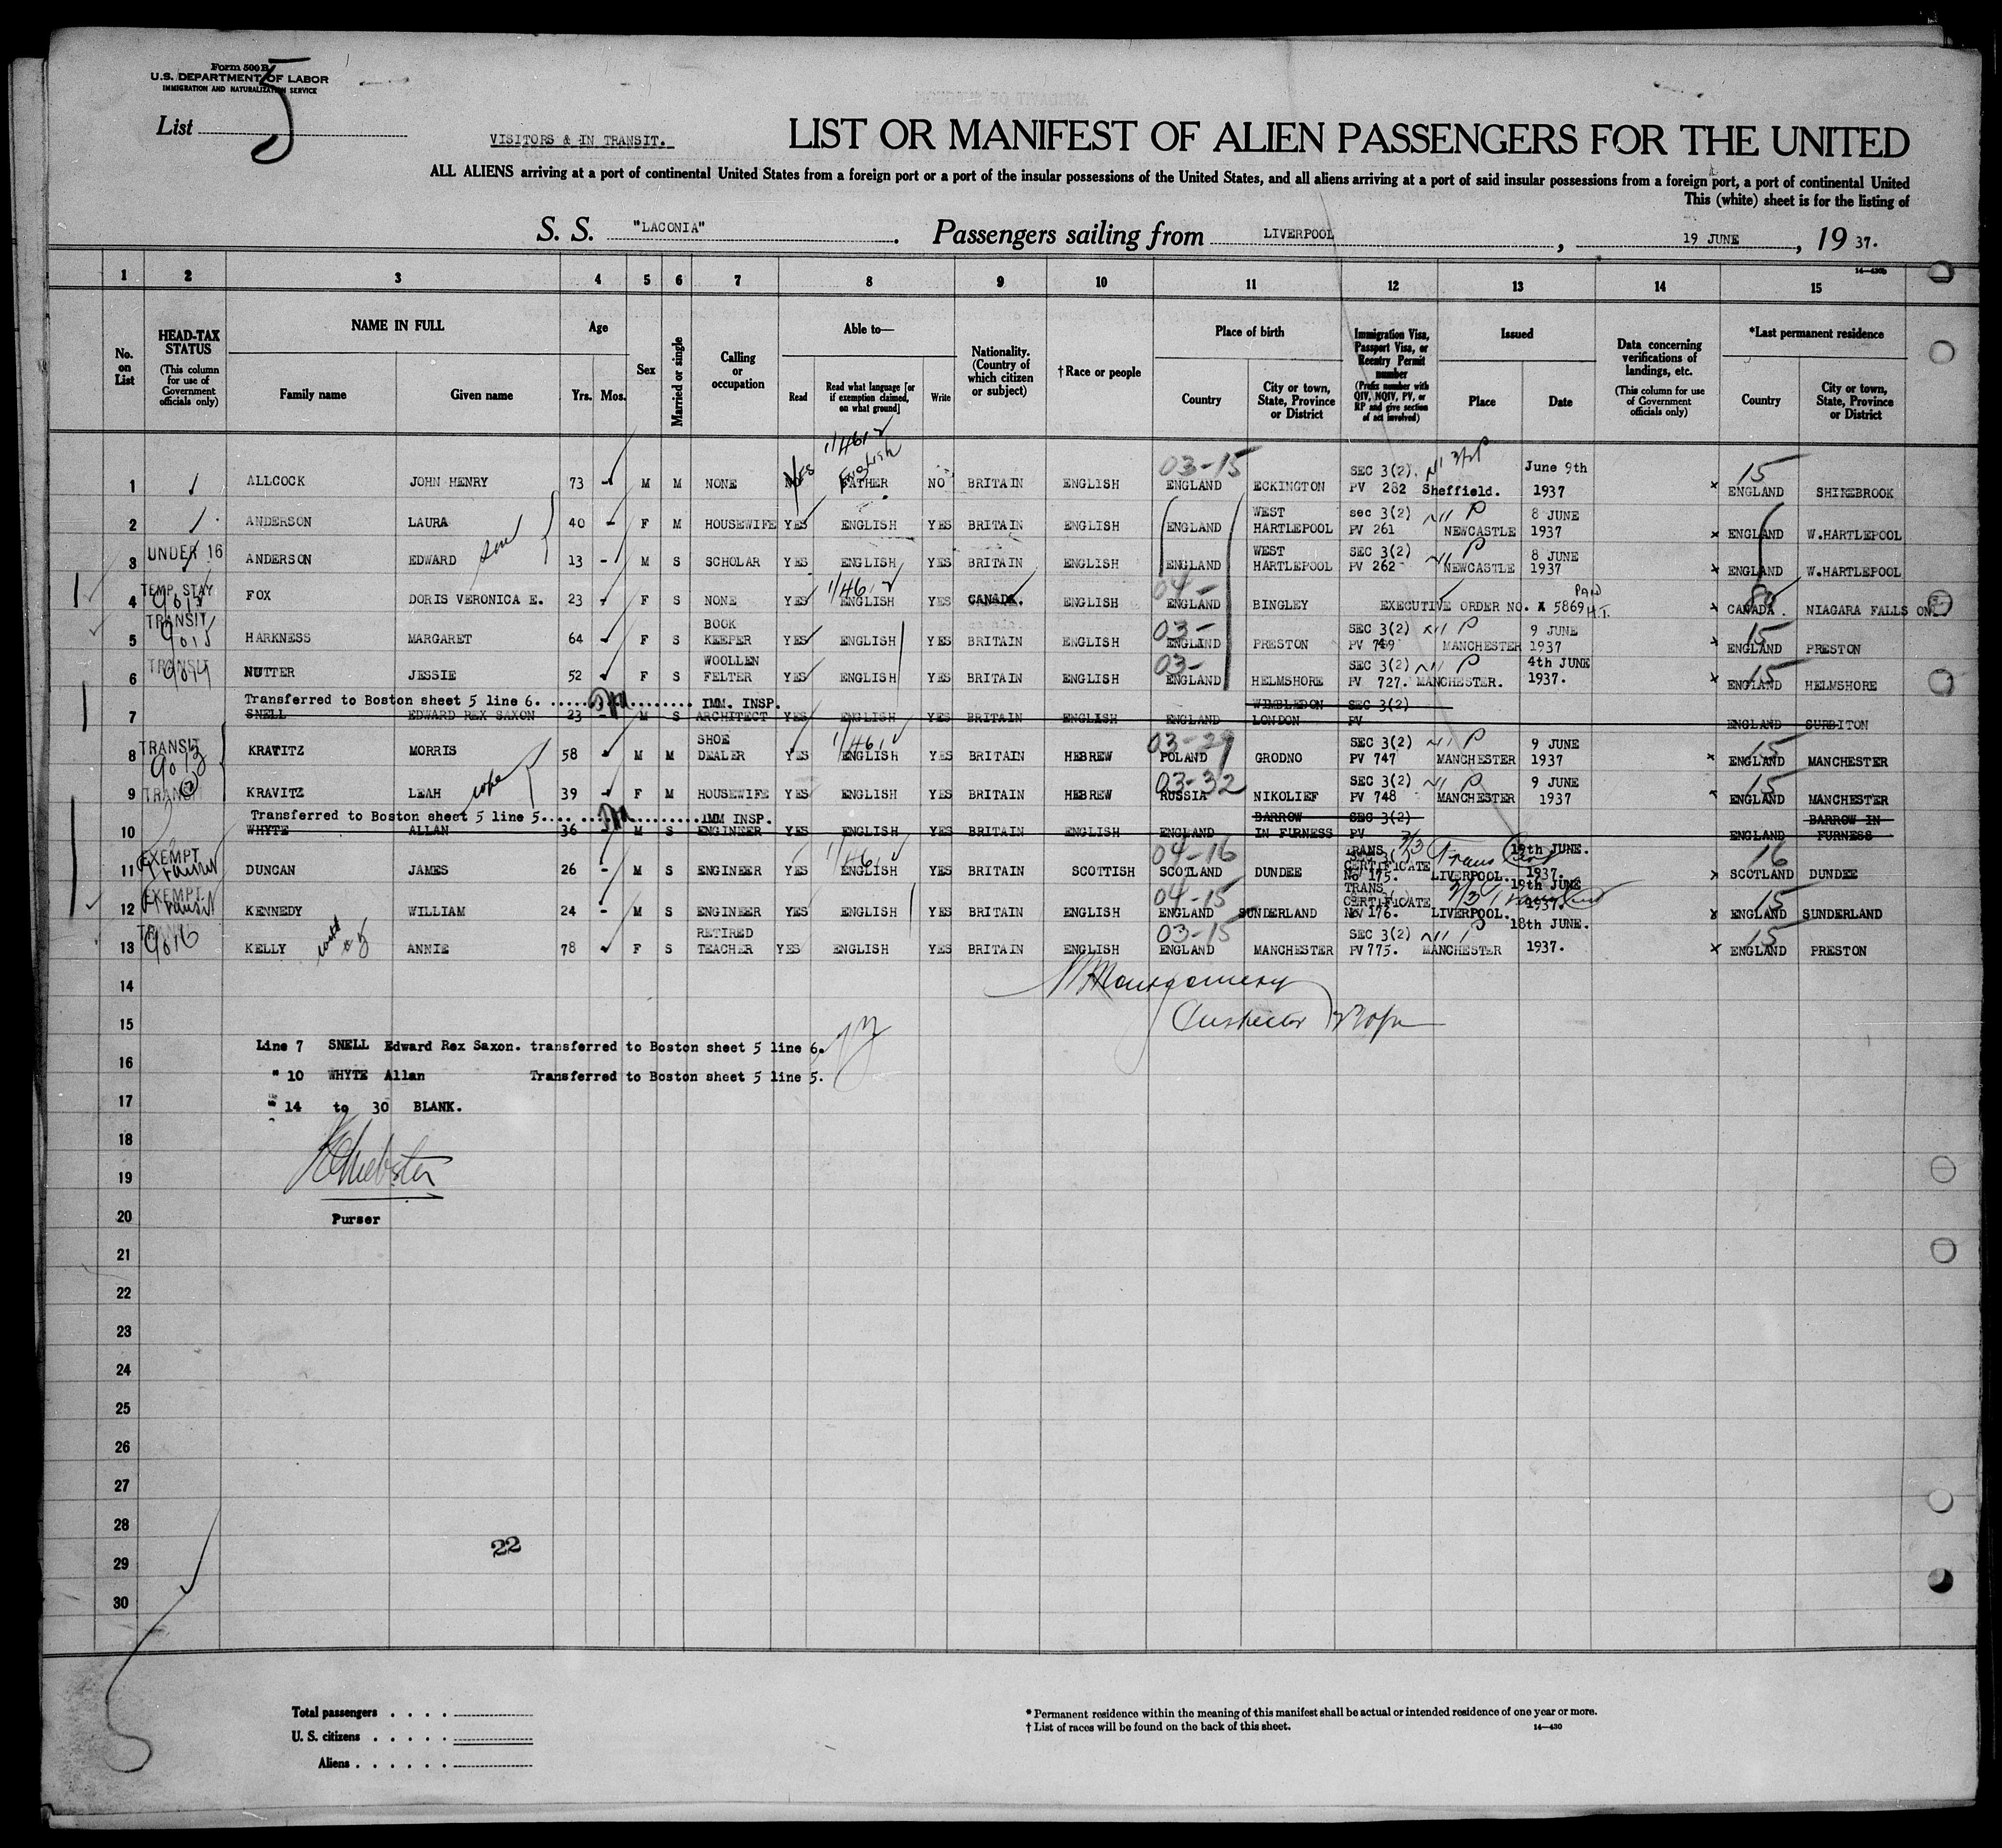 Form 500 B
U.S. DEPARTMENT OF LABOR
IMMIGRATION AND NATURALIZATION SERVICE
List 5
VISITORS & IN TRANSIT.
LIST OR MANIFEST OF ALIEN PASSENGERS FOR THE UNITED
ALL ALIENS arriving at a port of continental United States from a foreign port or a port of the insular possessions of the United States, and all aliens arriving at a port of said insular possessions from a foreign port, a port of continental United
This (white) sheet is for the listing of
S. S. "LACONIA". Passengers sailing from LIVERPOOL, 19 JUNE, 19 37.
14—430b
1 2 3 4 5 6 7 8 9 10 11 12 13 14 15
No. on List
HEAD-TAX STATUS (This column for use of Government officials only)
NAME IN FULL
Family name Given name
Age
Yrs. Mos.
Sex
Married or single
Calling or occupation
Able to—
Read
Read what language [or if exemption claimed, on what ground]
Write
Nationality. (Country of which citizen or subject)
† Race or people
Place of birth
Country
City or town, State, Province or District
Immigration Visa, Passport Visa, or Reentry Permit number (Prefix number with QIV, NQIV, PV, or RP and give section of act involved)
Issued
Place Date
Data concerning verifications of landings, etc. (This column for use of Government officials only)
*Last permanent residence
Country
City or town, State, Province or District
1 ALLCOCK JOHN HENRY 73 - M M NONE Yes English FATHER NO BRITAIN ENGLISH 03-15 ENGLAND ECKINGTON SEC 3(2). PV 282 Sheffield. June 9th 1937 x 15 ENGLAND SHIREBROOK
2 ANDERSON LAURA 40 - F M HOUSEWIFE YES ENGLISH YES BRITAIN ENGLISH ENGLAND WEST HARTLEPOOL sec 3(2) PV 261 NEWCASTLE 8 JUNE 1937 x ENGLAND W.HARTLEPOOL
3 UNDER 16 ANDERSON EDWARD son 13 - M S SCHOLAR YES ENGLISH YES BRITAIN ENGLISH ENGLAND WEST HARTLEPOOL SEC 3(2) PV 262 NEWCASTLE 8 JUNE 1937 x ENGLAND W.HARTLEPOOL
4 TEMP. STAY FOX DORIS VERONICA E. 23 - F S NONE YES ENGLISH YES CANADA. ENGLISH 04- ENGLAND BINGLEY EXECUTIVE ORDER NO. 5869 H.T. x CANADA. NIAGARA FALLS ON.
5 TRANSIT 9015 HARKNESS MARGARET 64 F S BOOK KEEPER YES ENGLISH YES BRITAIN ENGLISH 03- ENGLAND PRESTON SEC 3(2) PV 749 MANCHESTER 9 JUNE 1937 15 ENGLAND PRESTON
6 TRANSIT 9014 NUTTER JESSIE 52 F S WOOLLEN FELTER YES ENGLISH YES BRITAIN ENGLISH 03- ENGLAND HELMSHORE SEC 3(2) PV 727. MANCHESTER. 4th JUNE 1937. x 15 ENGLAND HELMSHORE
Transferred to Boston sheet 5 line 6. IMM. INSP.
7 SNELL EDWARD REX SAXON 23 - M S ARCHITECT YES ENGLISH YES BRITAIN ENGLISH ENGLAND WIMBLEDON LONDON SEC 3(2) PV ENGLAND SURBITON
8 TRANSIT 9013 KRAVITZ MORRIS 58 M M SHOE DEALER YES ENGLISH YES BRITAIN HEBREW 03-29 POLAND GRODNO SEC 3(2) PV 747 MANCHESTER 9 JUNE 1937 x 15 ENGLAND MANCHESTER
9 TRANSIT KRAVITZ LEAH wife 39 F M HOUSEWIFE YES ENGLISH YES BRITAIN HEBREW 03-32 RUSSIA NIKOLIEF SEC 3(2) PV 748 MANCHESTER 9 JUNE 1937 15 ENGLAND MANCHESTER
Transferred to Boston sheet 5 line 5. IMM INSP.
10 WHYTE ALLAN 36 - M S ENGINEER YES ENGLISH YES BRITAIN ENGLISH ENGLAND BARROW IN FURNESS SEC 3(2) PV ENGLAND BARROW IN FURNESS
11 EXEMPT Transit DUNCAN JAMES 26 - M S ENGINEER YES ENGLISH YES BRITAIN SCOTTISH 04-16 SCOTLAND DUNDEE TRANS CERTIFICATE No 175. LIVERPOOL. 19th JUNE. 1937. x 16 SCOTLAND DUNDEE
12 EXEMPT Transit KENNEDY WILLIAM 24 - M S ENGINEER YES ENGLISH YES BRITAIN ENGLISH 04-15 ENGLAND SUNDERLAND TRANS CERTIFICATE No 176. LIVERPOOL. 19th JUNE 1937. x 15 ENGLAND SUNDERLAND
13 9016 KELLY ANNIE 78 F S RETIRED TEACHER YES ENGLISH YES BRITAIN ENGLISH 03-15 ENGLAND MANCHESTER SEC 3(2) PV 775. MANCHESTER 18th JUNE. 1937. x 15 ENGLAND PRESTON
14
15
Montgomery
Inspector
Line 7 SNELL Edward Rex Saxon. transferred to Boston sheet 5 line 6.
16
" 10 WHYTE Allan Transferred to Boston sheet 5 line 5.
17
" 14 to 30 BLANK.
18
Webster
19
20
Purser
21
22
23
24
25
26
27
28
22
29
30
Total passengers
U. S. citizens
Aliens
* Permanent residence within the meaning of this manifest shall be actual or intended residence of one year or more.
† List of races will be found on the back of this sheet.
14—430